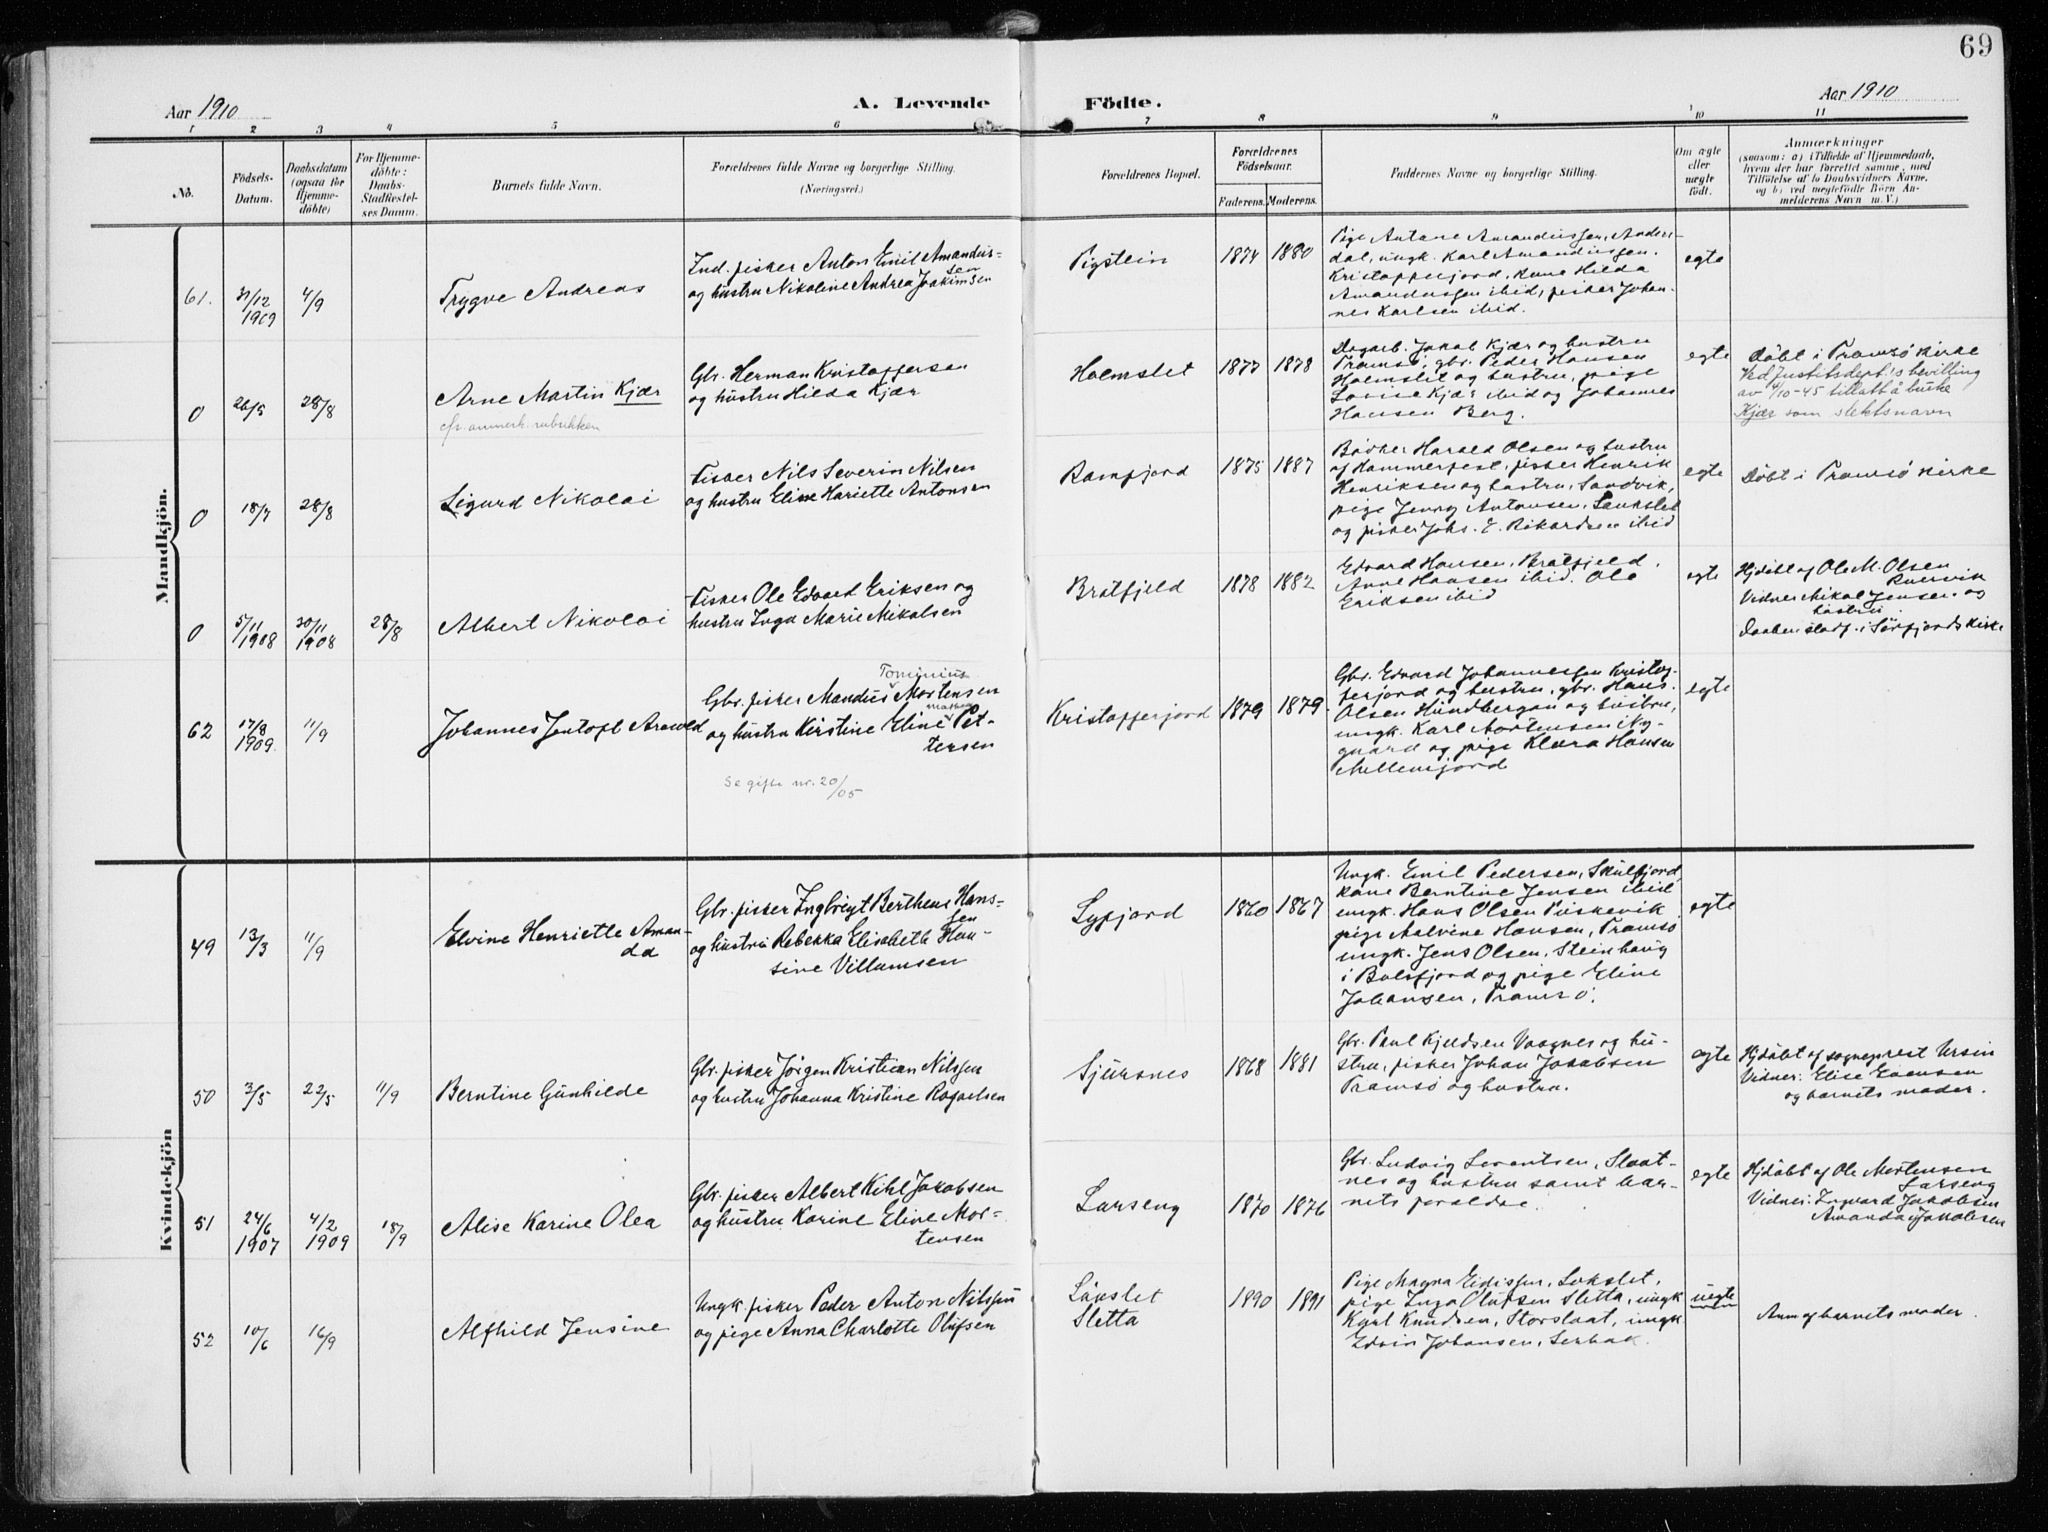 69
Aar 1910
A. Levende
Födte.
Aar 1910
1 2 3 4 5 6 7 8 9 10 11
No.
Födsels-
Datum.
Daabsdatum
(ogsaa for
Hjemme-
döbte)
For Hjemme-
döbte:
Daabs-
Stadfæstel-
ses Datum.
Barnets fulde Navn.
Forældrenes fulde Navne og borgerlige Stilling.
(Næringsvei.)
Forældrenes Bopæl.
Forældrenes
Födselsaar.
Faderens. Moderens.
Faddernes Navne og borgerlige Stilling.
Om ægte
eller
uægte
födt.
Anmærkninger
(saasom: a) i Tilfælde af Hjemmedaab,
hvem der har forrettet samme, med
Tilföielse af to Daabsvidners Navne,
og b) ved uægtefödte Börn An-
melderens Navn m. V.)
Mandkjön.
61. 31/12 1909 4/9
Trygve Andreas
Ind. fisker Anton Emil Amandus-
sen
og hustru Nikoline Andrea Joakimsen
Pigstein
1874 1880
Pige Antane Amandussen, Anders-
dal, ungk. Karl Amandussen,
Kristofferjord, kone Hilda
Amandussen ibid, fisker Johan-
nes Karlsen ibid.
egte
0 26/5 28/8
Arne Martin Kjær
cfr. anmerk. rubrikken
Gbr. Herman Kristoffersen
og hustru Hilda Kjær
Holmslet
1877 1878
Dagarb. Jakob Kjær og hustru
Tromsø, gbr. Peder Hansen
Holmslet og hustru, pige
Lovise Kjær ibid og Johannes
Hansen Berg.
egte
Döbt i Tromsö Kirke
Ved Justitsdept.'s bevilling
av 4/10-45 tillatt å bruke
Kjær som slektsnavn
0 18/7 28/8
Sigurd Nikolai
Fisker Nils Severin Nilsen
og hustru Eline Hariette Antonsen
Ramfjord
1875 1887
Bödker Harald Olsen og hustru
af Hammerfest, fisker Henrik
Henriksen og hustru, Sandvik,
pige Jenny Antonsen, Laukslet
og fisker Johs. E. Rikardsen ibid
egte
Döbt i Tromsö Kirke
0 5/11 1908 30/11 1908 28/8
Albert Nikolai
Fisker Ole Edvard Eriksen og
hustru Inga Marie Mikalsen
Bratfjeld
1878 1882
Edvard Hansen, Bratfjeld,
Anne Hansen ibid. Ole
Eriksen ibid
egte
Hjdöbt af Ole M. Olsen
Vidner Mikal Jensen og
hustru.
Daaben stadf. i Sörfjords Kirke
62 17/8 1909 11/9
Johannes Jentoft Arnold
Tominius
Gbr. fisker Mandus Mortensen
og hustru Kirstine Eline Pet-
tersen
Se gifte nr. 20/05
Kristofferjord
1879 1879
Gbr. Edvard Johannessen Kristof-
ferjord og hustru, gbr. Hans
Olsen Hundbergan og hustru,
ungk. Karl Mortensen Ny-
guard og pige Klara Hansen
Mellemjord
egte
Kvindekjön
49 13/3 11/9
Elvine Henriette Aman-
da
Gbr. fisker Ingbrigt Bertheus Hans-
sen
og hustru Rebekka Elisabeth Han-
sine Villumsen
Lyfjord
1860 1867
Ungk. Emil Pedersen, Skulfjord,
kone Berntine Jensen ibid
ungk. Hans Olsen
pige Malvine Hansen, Tromsö
ungk. Jens Olsen, Steinhaug
i Balsfjord og pige Eline
Johansen, Tromsö.
egte
50 3/5 22/5 11/9
Berntine Gunhilde
Gbr. fisker Jörgen Kristian Nilssen
og hustru Johanna Kristine Rafaelsen
Sjursnes
1868 1881
Gbr. Paul Kjeldsen Vaagnes og hu-
stru, fisker Johan Jakobsen
Tromsö og hustru.
egte
Hjdöbt af sogneprest Ursin
Vidner: Elise Evensen
og barnets moder.
51 24/6 1907 4/2 1909 18/9
Alise Karine Olea
Gbr. fisker Albert Kihl Jakobsen
og hustru Karine Eline Mor-
tensen
Larseng
1870 1876
Gbr. Ludvig Lorentsen, Slaat-
nes og hustru samt bar-
nets foreldre.
egte
Hjdöbt af Ole Mortensen
Larseng
Vidner: Ingvard Jakobsen
Amanda Jakobsen
52 10/6 16/9
Alfhild Jensine
Ungk. fisker Peder Anton Nilssen
og pige Anna Charlotte Olufsen
Laukslet
Sletta
1890 1891
Pige Magna Eidissen, Lokslet,
pige Inga Olufsen Sletta, ungk
Kyrl Knudsen, Storslaat, ungk.
Edvin Johansen, Serbak.
uegte
Anm af barnets moder.